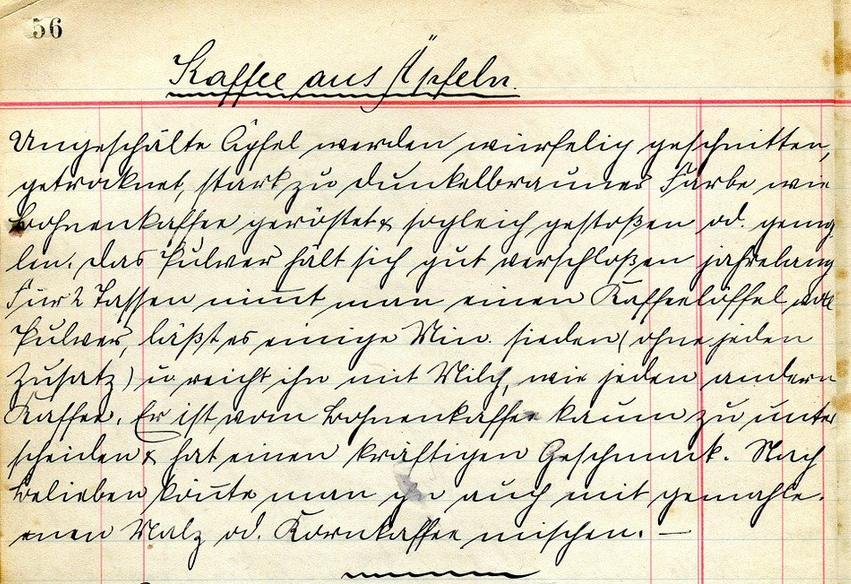 56
Kaffee aus Äpfeln.
Ungeschälte Äpfel werden würfelig geschnitten,
getrocknet, stark zu dunkelbrauner Farbe wie
Bohnenkaffee geröstet & sogleich gestoßen od. gemah
len. Das Pulver hält sich gut verschloßen jahrelang
Für 2 Tassen nimt man einen Kaffeelöffel voll
Pulver, läßt es einige Min. sieden (ohne jeden
Zusatz) u. reicht ihn mit Milch, wie jeden andern
Kaffee. Er ist vom Bohnenkaffee kaum zu unter
scheiden & hat einen kräftigen Geschmack. Nach
Belieben könte man ihn auch mit gemahle-
nen Malz od. Kornkaffee mischen. —